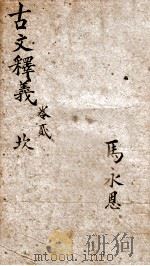 古文釋義
卷貳
坎
馬永恩